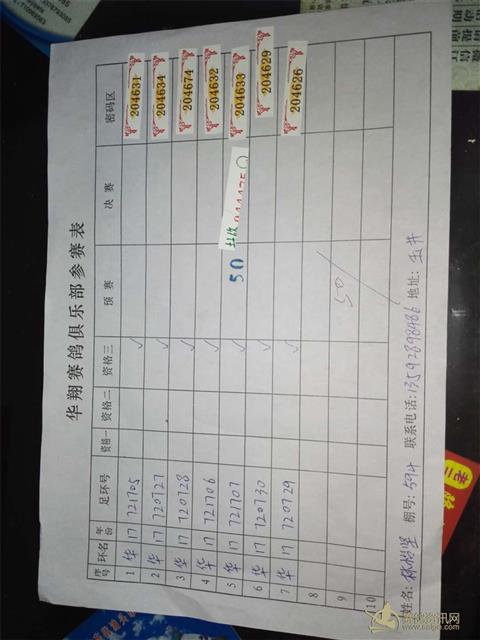 华翔赛鸽俱乐部参赛表
序号 环名 年份 足环号 资格一 资格二 资格三 预赛 决赛 密码区
1 华 17 721705 ✓ 204631
2 华 17 720727 ✓ 204634
3 华 17 720728 ✓ 204674
4 华 17 721706 ✓ 204632
5 华 17 721707 ✓ 50 204633
6 华 17 720730 ✓ 204629
7 华 17 720729 ✓ 204626
8
9 50
10
姓名: 棚号:594 联系电话:13592898486 地址:玉井